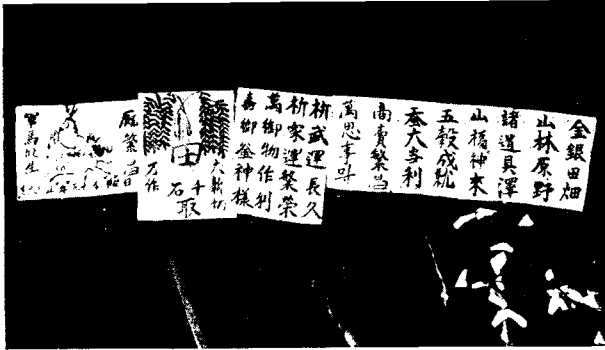 金銀田畑
山林原野
諸道具澤
山福神来
五穀成就
蚕大当利
商賣繁昌
萬思事叶
祈武運長久
祈家運繁榮
萬御物作利
壽御釜神様
田
千石取
万作
厩繁昌
軍馬